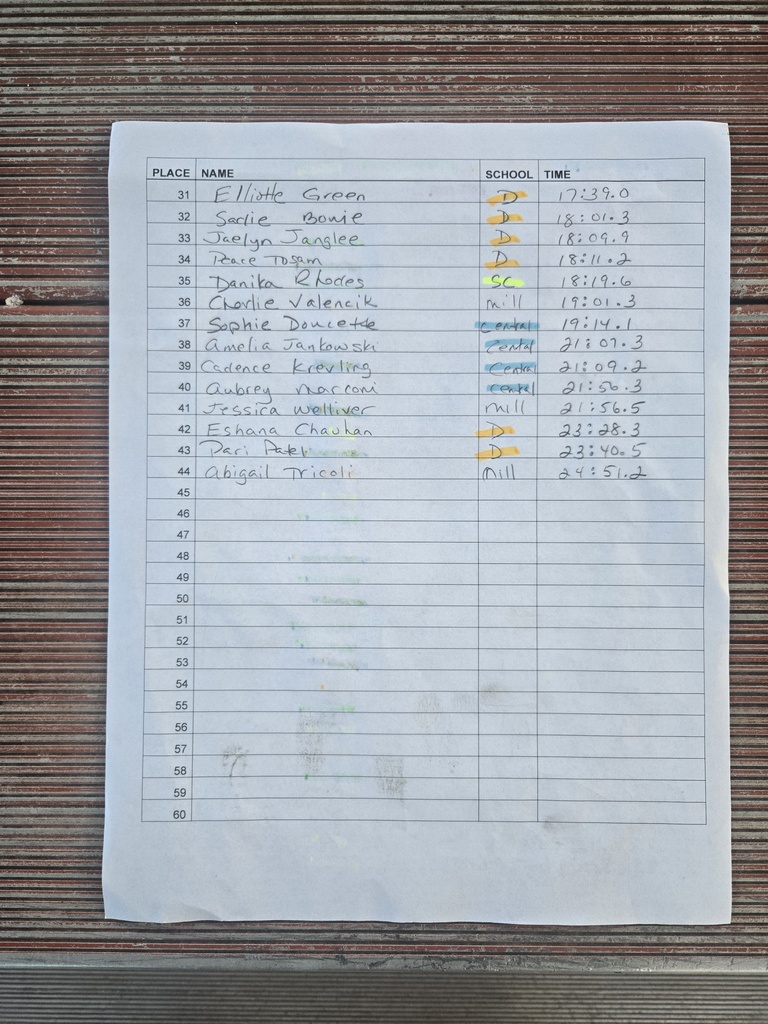 PLACE NAME SCHOOL TIME
31 Elliotte Green D 17:39.0
32 Sadie Bowie D 18:01.3
33 Jaelyn Janglee D 18:09.9
34 Peace Tosam D 18:11.2
35 Danika Rhodes SC 18:19.6
36 Charlie Valencik mill 19:01.3
37 Sophie Doucette Central 19:14.1
38 Amelia Jankowski Central 21:07.3
39 Cadence Krevling Central 21:09.2
40 Aubrey Marconi Central 21:50.3
41 Jessica Welliver mill 21:56.5
42 Eshana Chauhan D 23:28.3
43 Pari Patel D 23:40.5
44 Abigail Tricoli Mill 24:51.2
45
46
47
48
49
50
51
52
53
54
55
56
57
58
59
60